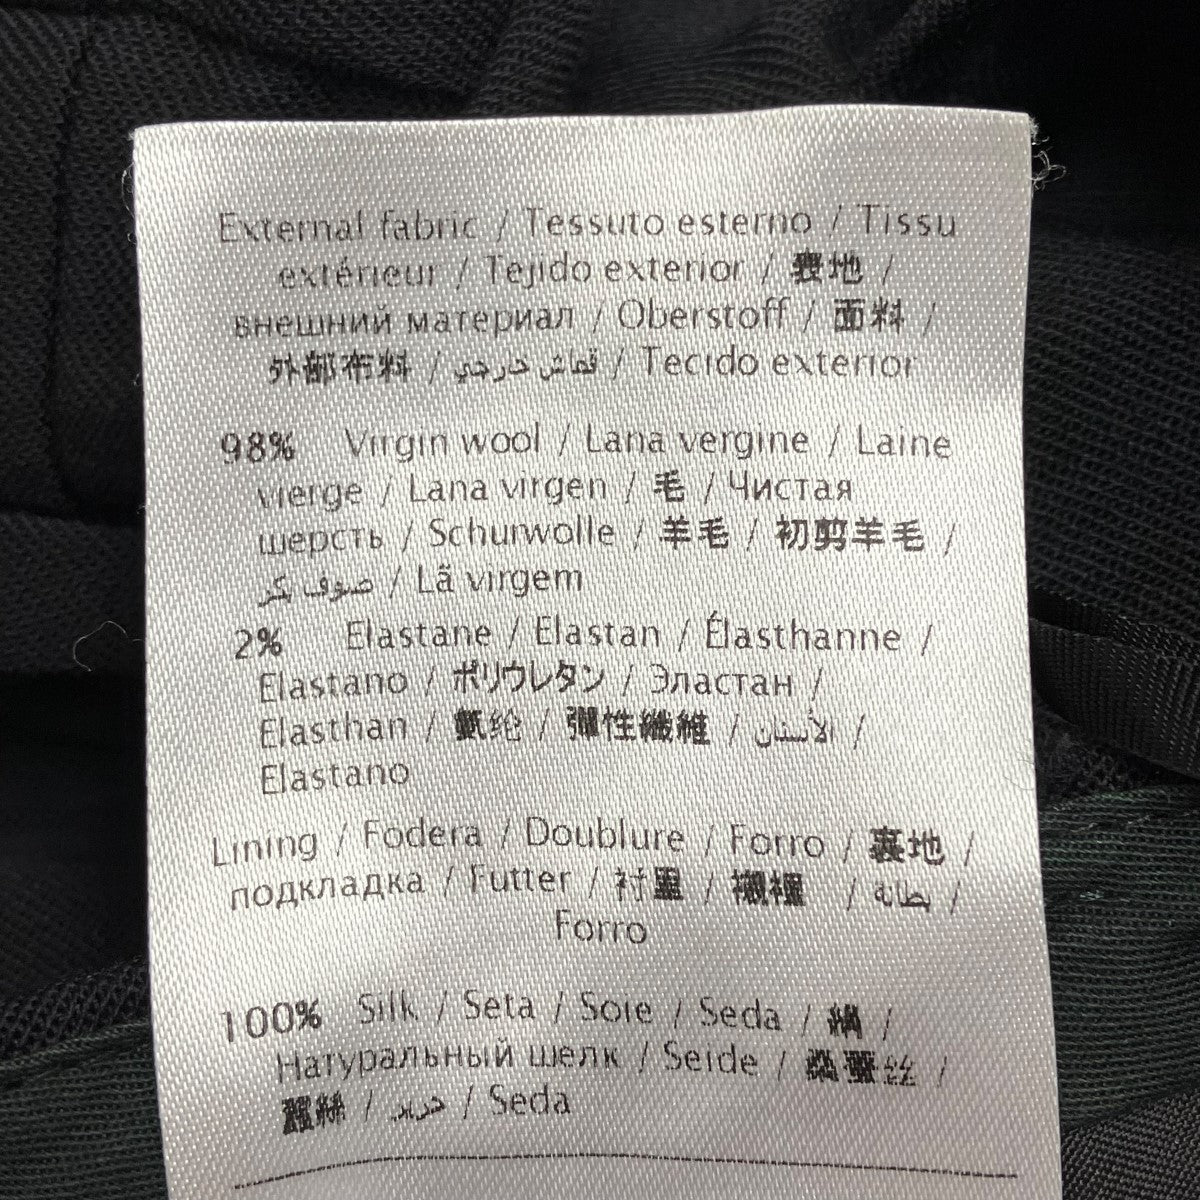 External fabric / Tessuto esterno / Tissu
extérieur / Tejido exterior / 表地 /
внешний материал / Oberstoff / 面料 /
外部布料 / قماش خارجي / Tecido exterior
98% Virgin wool / Lana vergine / Laine
vierge / Lana virgen / 毛 / Чистая
шерсть / Schurwolle / 羊毛 / 初剪羊毛 /
صوف بكر / Lã virgem
2% Elastane / Elastan / Élasthanne /
Elastano / ポリウレタン / Эластан /
Elasthan / 氨纶 / 彈性纖維 / الأستان /
Elastano
Lining / Fodera / Doublure / Forro / 裏地 /
подкладка / Futter / 衬里 / 襯裡 / بطانة /
Forro
100% Silk / Seta / Soie / Seda / 絹 /
Натуральный шелк / Seide / 桑蚕丝 /
蠶絲 / حرير / Seda